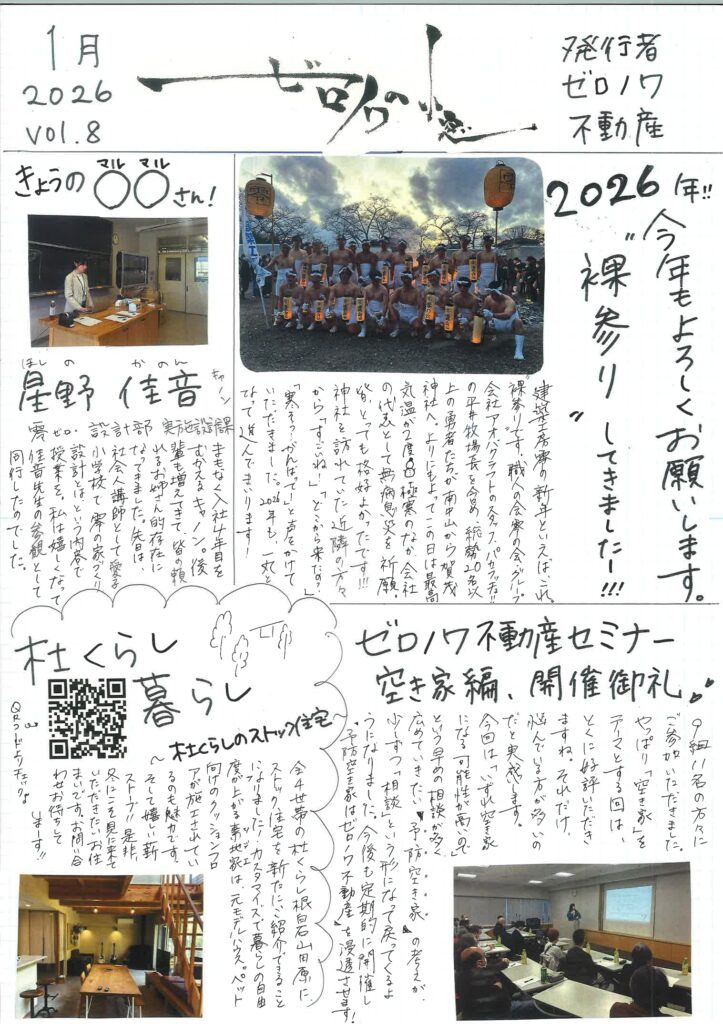 1月
2026
vol.8
ゼロノワの小窓
発行者
ゼロノワ
不動産
2026年!!
今年もよろしくお願いします。
"裸参り"
してきましたー!!!
建築工房零の新年といえばこれ。
裸参りです。職人の会零の会、グループ
会社アオバクラフトのスタッフ、パカラッチョ!!
の平井牧場長を含め、総勢20名以
上の勇者たちが南中山から賀茂
神社へ。よりにもよってこの日は最高
気温が2度の極寒のなか、会社
の代表として無病息災を祈願。
皆、とっても格好よかったです!!!
神社を訪れていた近隣の方々
から「すごいね。」「どこから来たの?」
「寒そう!がんばって!」と声をかけて
いただきました。2026年も、一丸と
なって進んでまいります!
きょうの〇〇さん!
マルマル
ほしの かのん
星野 佳音
キャノン
零ゼロ. 設計部 実施設計課
まもなく入社4年目を
むかえるキャノン。後
輩も増えてきて、皆の頼
れるお姉さん的存在に
なってきました。先日は、
社会人講師として愛子
小学校で「零の家づくり、
設計とは」という内容で
授業を。私は嬉しくなって
佳音先生の参観として
同行したのでした。
杜くらし
暮らし
~杜くらしのストック住宅~
QRコードよりチェック♪
全4世帯の杜くらし根白石山田原に、
ストック住宅を新たにご紹介できること
になりました!カスタマイズで暮らしの自由
度が上がる菊地家は、元モデルハウス。ペット
向けのクッションフロ
アが施工されてい
るのも魅力です。
そして嬉しい薪
ストーブ!!是非、
冬にこそ見に来て
いただきたいお住
まいです。お問い合
わせお待ちして
します!!
ゼロノワ不動産セミナー
空き家編、開催御礼
9組11名の方々に
ご参加いただきました。
やっぱり「空き家」を
テーマとする回は、
とくに好評いただき
ますね。それだけ、
悩んでいる方が多いの
だと実感します。
今回は「いずれ空き家
になる可能性が高いので」
という早めの相談が多く、
広めていきたい"予防空き家"の考えが、
少しずつ「相談」という形になって戻ってくるよ
うになりました。今後も定期的に開催し
"予防空き家はゼロノワ不動産"を浸透させます!